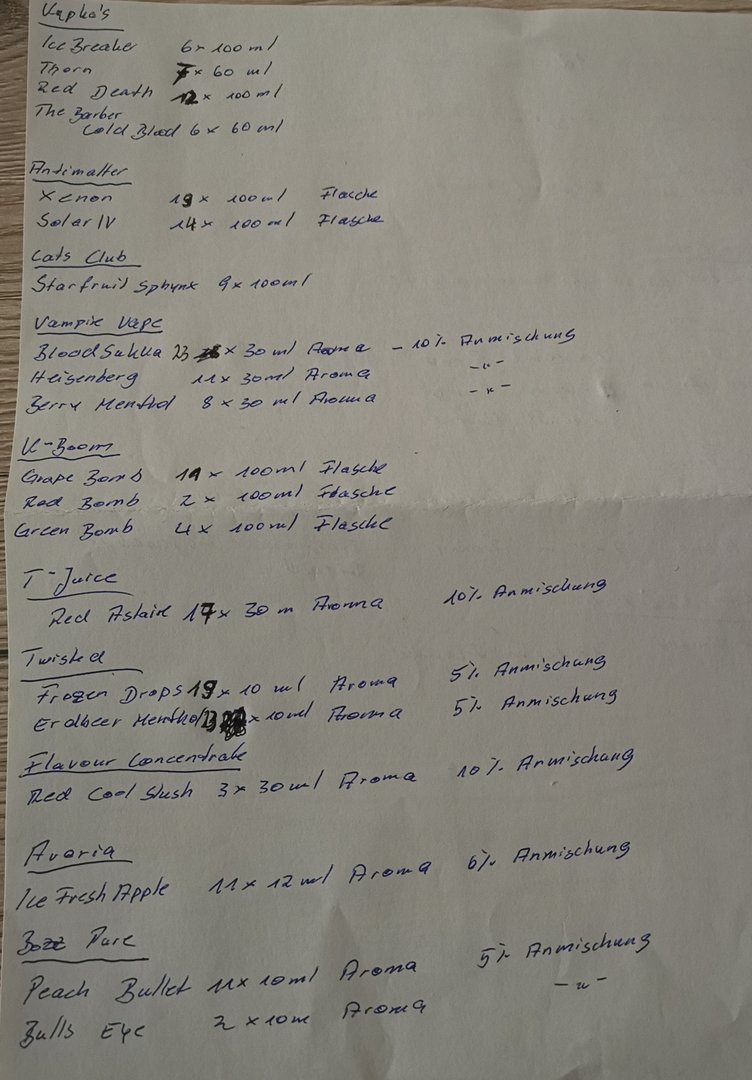 Vapka's
Ice Breaker 6x 100ml
Thorn 7x 60 ml
Red Death 12x 100ml
The Barber
Cold Blood 6x 60ml
Antimatter
Xenon 19x 100ml Flasche
Solar IV 14x 100ml Flasche
Cats Club
Starfruit Sphynx 9x100ml
Vampire Vape
Blood Sukka 23 x 30ml Aroma - 10% Anmischung
Heisenberg 11x 30ml Aroma -"-
Berry Menthol 8x30 ml Aroma -"-
K-Boom
Grape Bomb 19x 100ml Flasche
Red Bomb 2x 100ml Flasche
Green Bomb 4x 100ml Flasche
T-Juice
Red Astaire 17x 30 m Aroma 10% Anmischung
Twisted
Frozen Drops 19x 10 ml Aroma 5% Anmischung
Erdbeer Menthol 23 x 10ml Aroma 5% Anmischung
Flavour Concentrate
Red Cool Slush 3x30ml Aroma 10% Anmischung
Avoria
Ice Fresh Apple 11x 12ml Aroma 6% Anmischung
Bozz Pure
Peach Bullet 11x 10ml Aroma 5% Anmischung
Bulls Eye 2x10m Aroma -"-